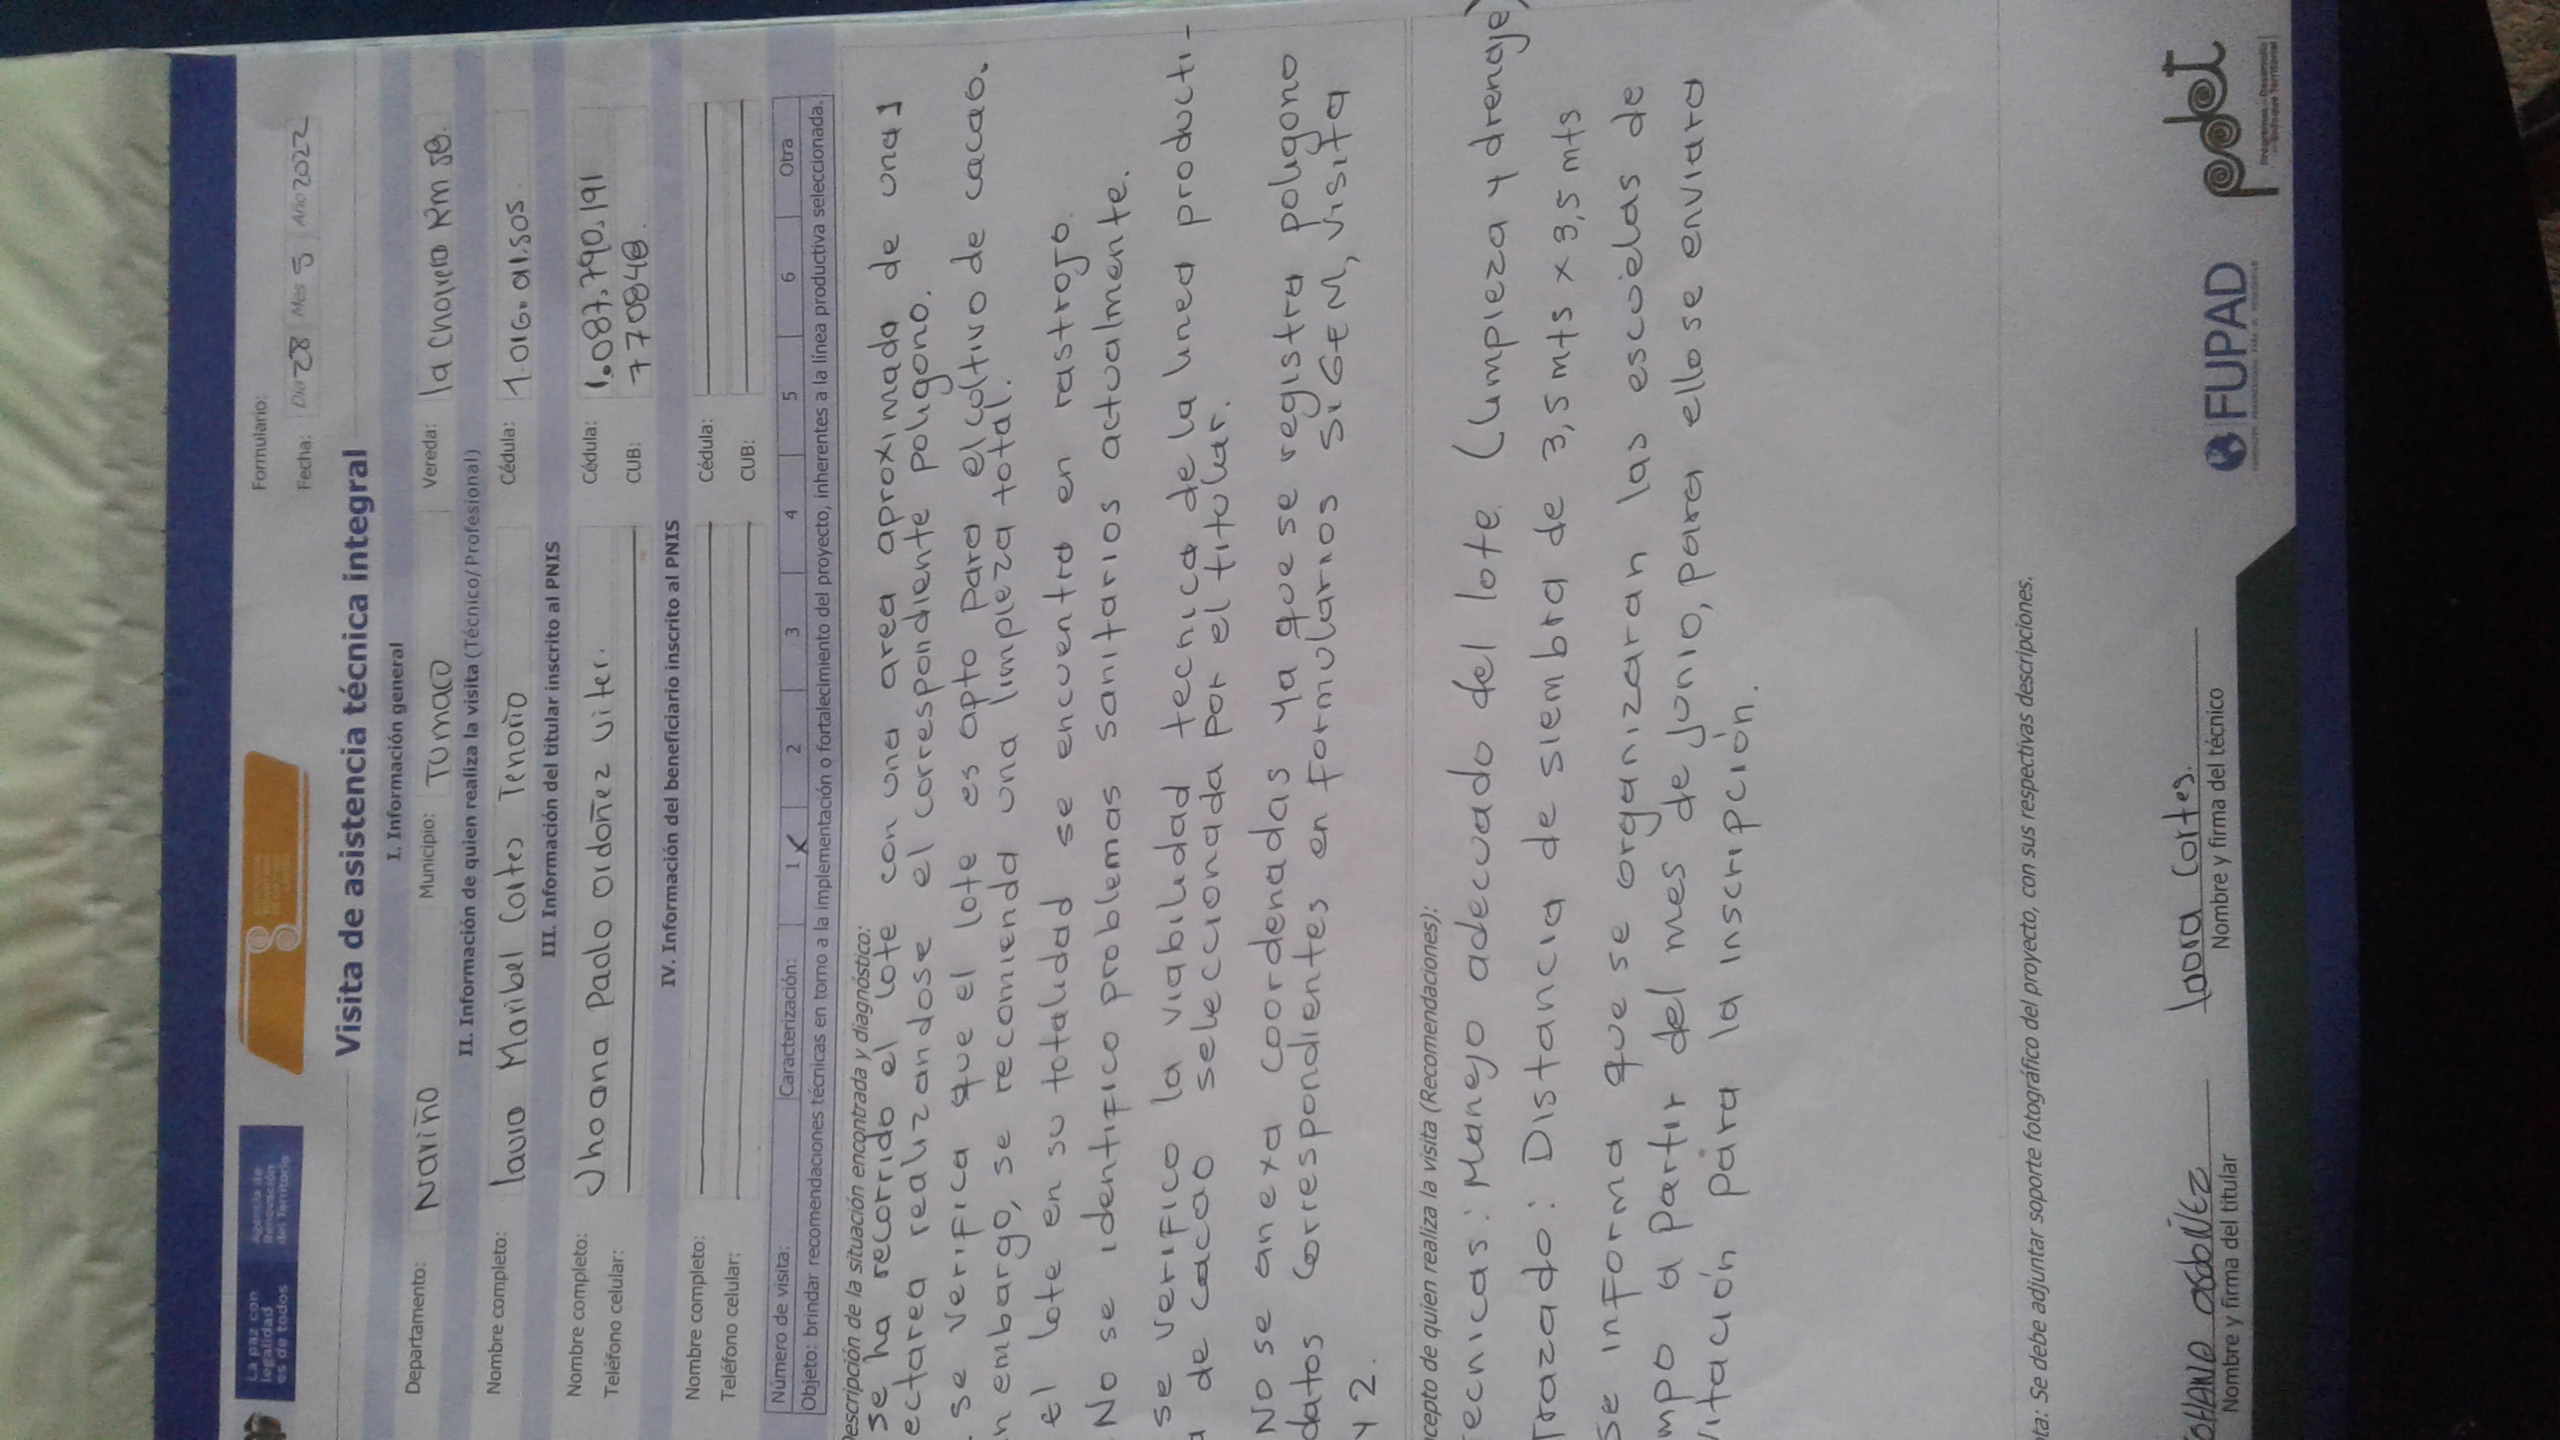 La paz con
legalidad
es de todos
Agencia de
Renovación
del Territorio
Formulario:
Fecha: Día 28 Mes 5 Año 2022
Visita de asistencia técnica integral
I. Información general
Departamento: Nariño Municipio: Tumaco Vereda: la Chorrera Km 58.
II. Información de quien realiza la visita (Técnico/Profesional)
Nombre completo: Laura Maribel Cortes Tenorio Cédula: 1.016.011.505.
III. Información del titular inscrito al PNIS
Nombre completo: Jhoana Paola Ordoñez Viter. Cédula: 1.087.790.191
Teléfono celular: CUB: 770848.
IV. Información del beneficiario inscrito al PNIS
Nombre completo: Cédula:
Teléfono celular: CUB:
Número de visita: Caracterización: 1 X 2 3 4 5 6 Otra
Objeto: brindar recomendaciones técnicas en torno a la implementación o fortalecimiento del proyecto, inherentes a la línea productiva seleccionada.
escripción de la situación encontrada y diagnóstico:
se ha recorrido el lote con una area aproximada de una 1
ectarea realizandose el correspondiente poligono.
- se verifica que el lote es apto para el cultivo de cacao.
n embargo, se recomienda una limpieza total.
el lote en su totalidad se encuentra en rastrojo.
- No se identifico problemas sanitarios actualmente.
se verifico la viabilidad tecnica de la linea producti-
a de cacao seleccionada por el titular.
No se anexa coordenadas ya que se registra poligono
datos correspondientes en formularios SIGEM, visita
y 2.
ncepto de quien realiza la visita (Recomendaciones):
ecnicas: Manejo adecuado del lote (limpieza y drenaje)
Trazado: Distancia de siembra de 3,5 mts x 3,5 mts
Se informa que se organizaran las escuelas de
mpo a partir del mes de junio, para ello se enviara
vitación para la inscripción.
ota: Se debe adjuntar soporte fotográfico del proyecto, con sus respectivas descripciones.
JOHANA ORDOÑEZ
Nombre y firma del titular
Laura Cortes.
Nombre y firma del técnico
FUPAD
pdet
Programas de Desarrollo
con Enfoque Territorial